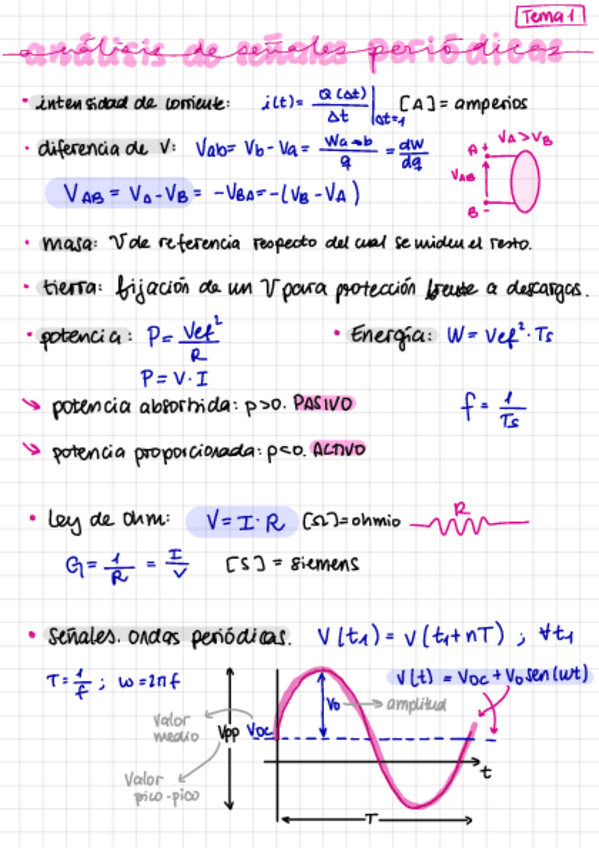 Tema 1
análisis de señales periódicas
• intensidad de corriente: i(t) = Q(Δt)/Δt |Δt=1 [A] = amperios
• diferencia de V: Vab = Vb - Va = Wa→b/q = dW/dq
VAB = VA - VB = -VBA = -(VB - VA)
A + VA > VB
VAB
B -
• masa: V de referencia respecto del cual se miden el resto.
• tierra: fijación de un V para protección frente a descargas.
• potencia: P = Vef²/R • Energía: W = Vef² · Ts
P = V · I
↘ potencia absorbida: p>0. PASIVO f = 1/Ts
↘ potencia proporcionada: p<0. ACTIVO
• Ley de Ohm: V = I · R [Ω] = ohmio R
G = 1/R = I/V [S] = siemens
• Señales. Ondas periódicas. V(t1) = V(t1 + nT) ; ∀t1
T = 1/f ; ω = 2πf V(t) = VDC + V0 sen(ωt)
V0 → amplitud
Valor medio VPP VDC
t
Valor pico-pico
T